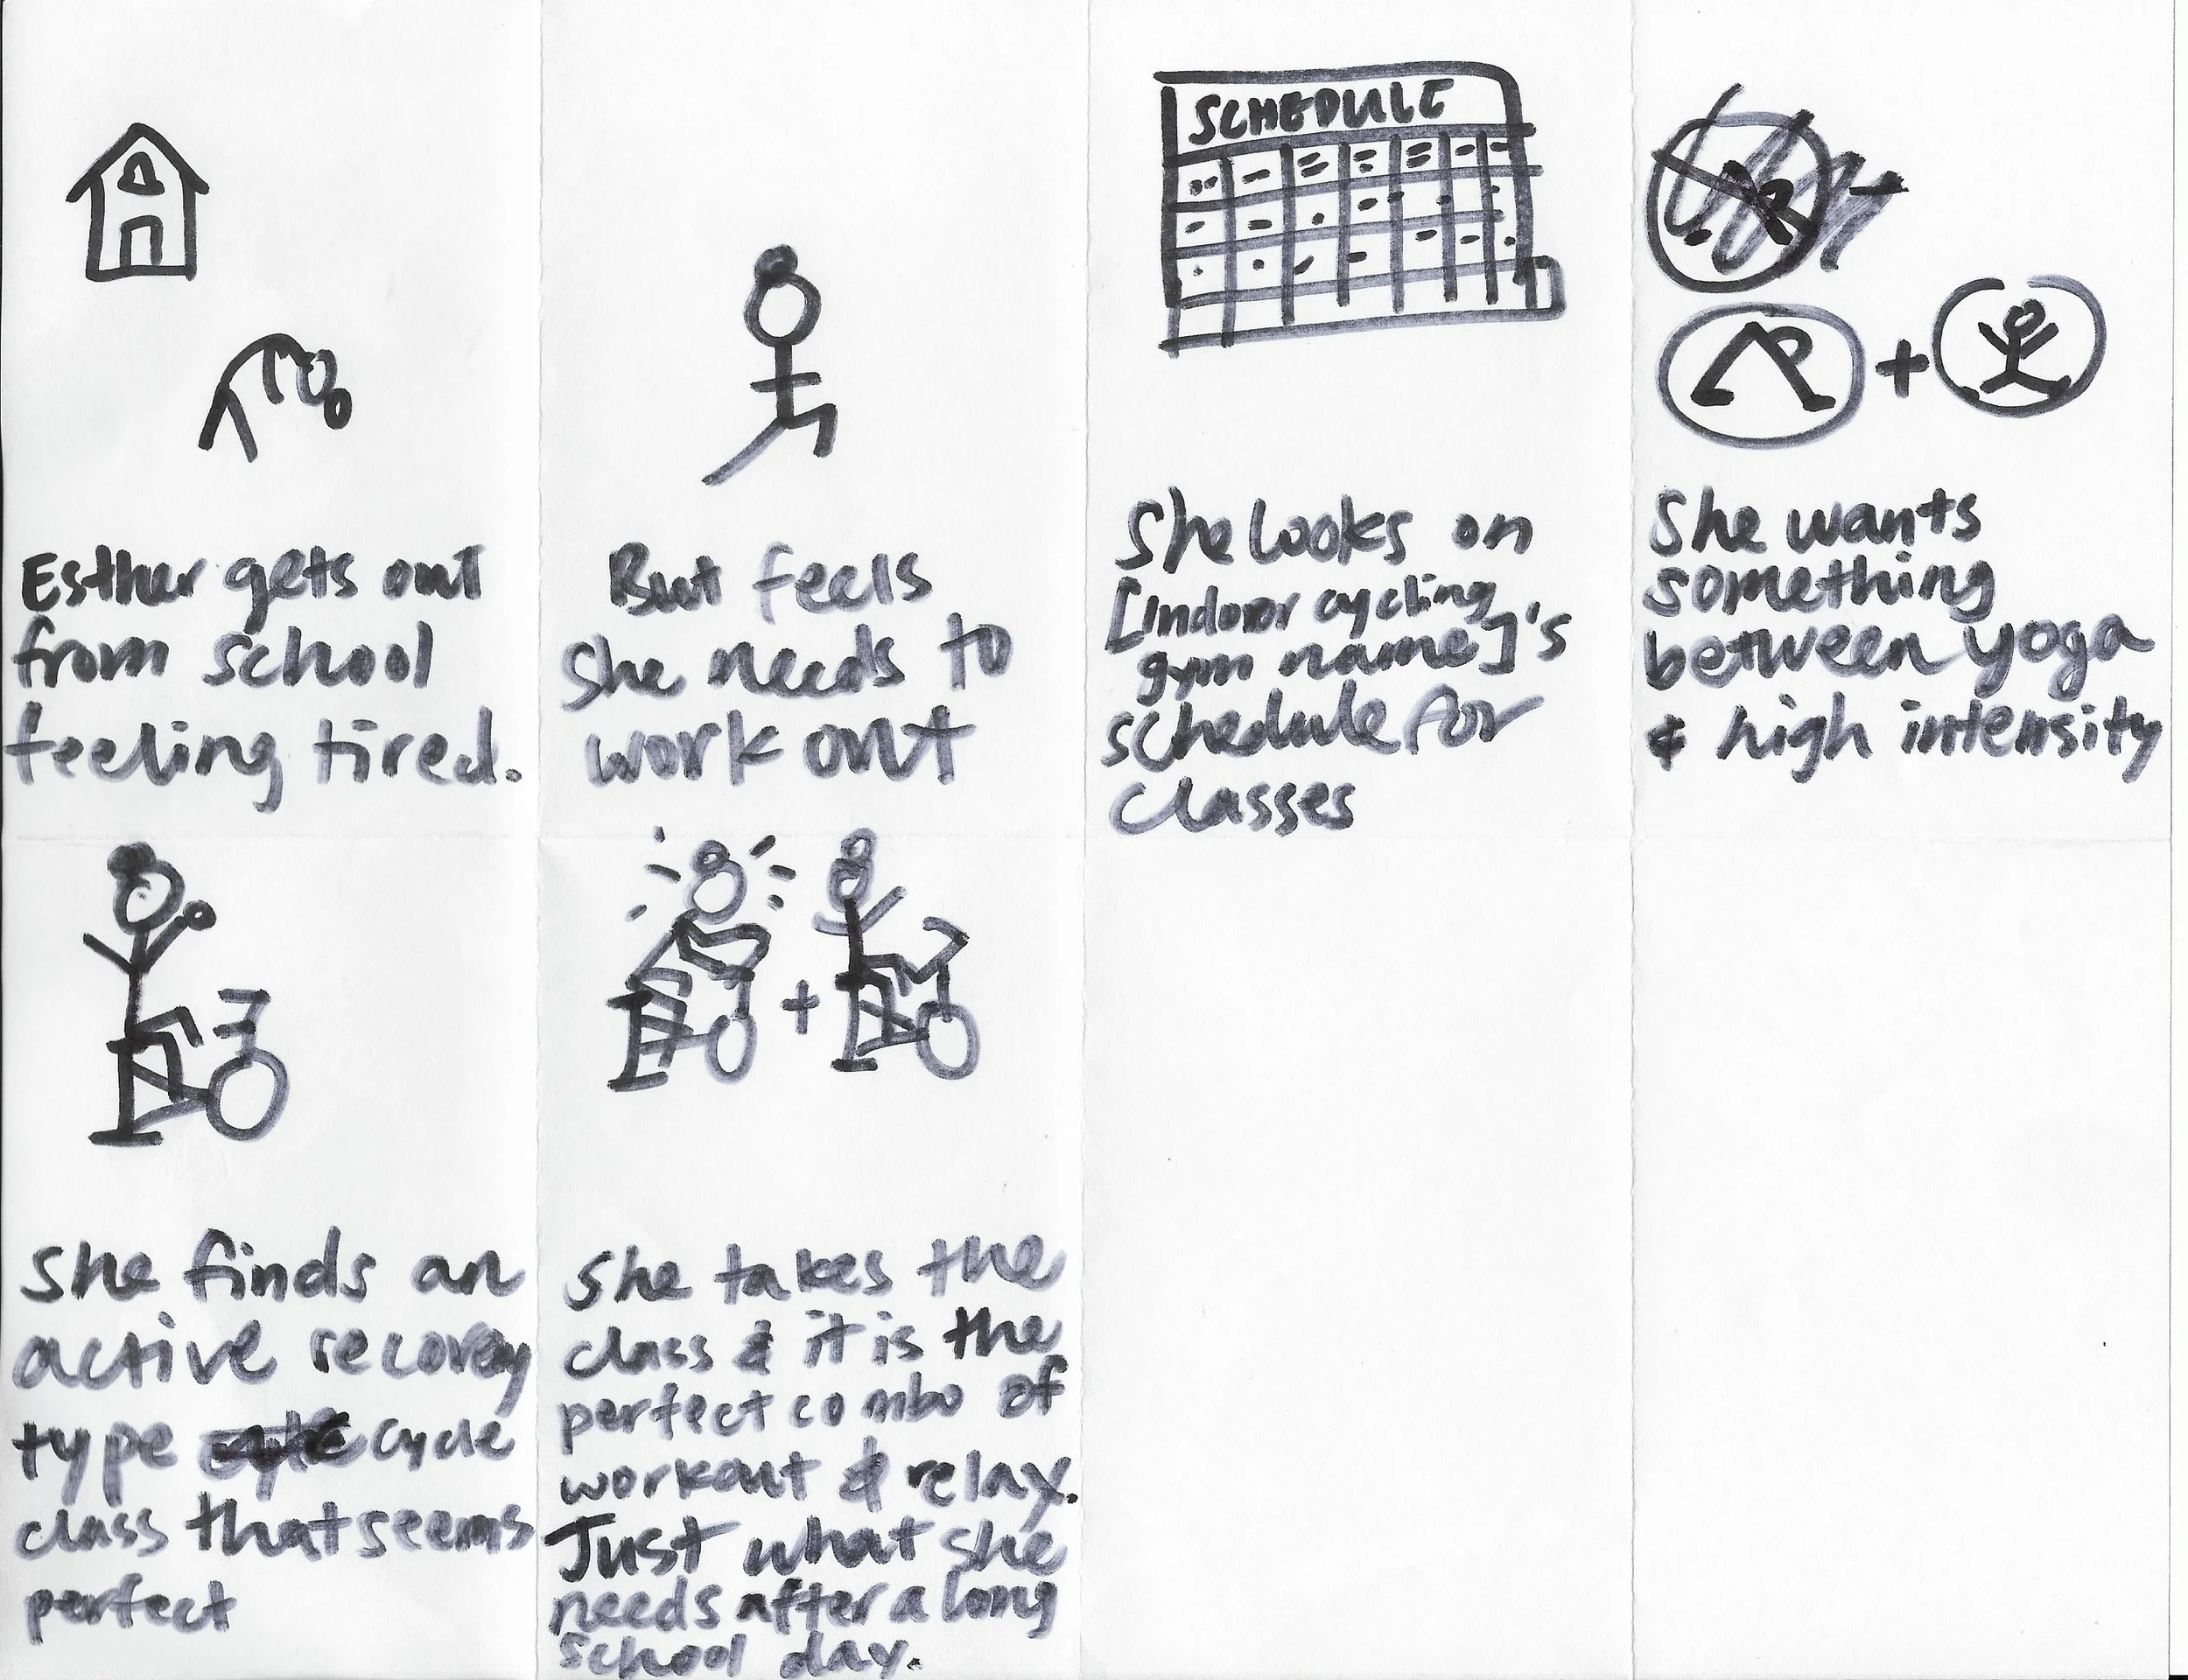 Esther gets out
from school
feeling tired.
But feels
She needs to
work out
SCHEDULE
She looks on
[Indoor cycling
gym name]'s
schedule for
classes
She wants
something
between yoga
& high intensity
She finds an
active recovery
type cycle
class that seems
perfect
She takes the
class & it is the
perfect combo of
workout & relax.
Just what she
needs after a long
school day.